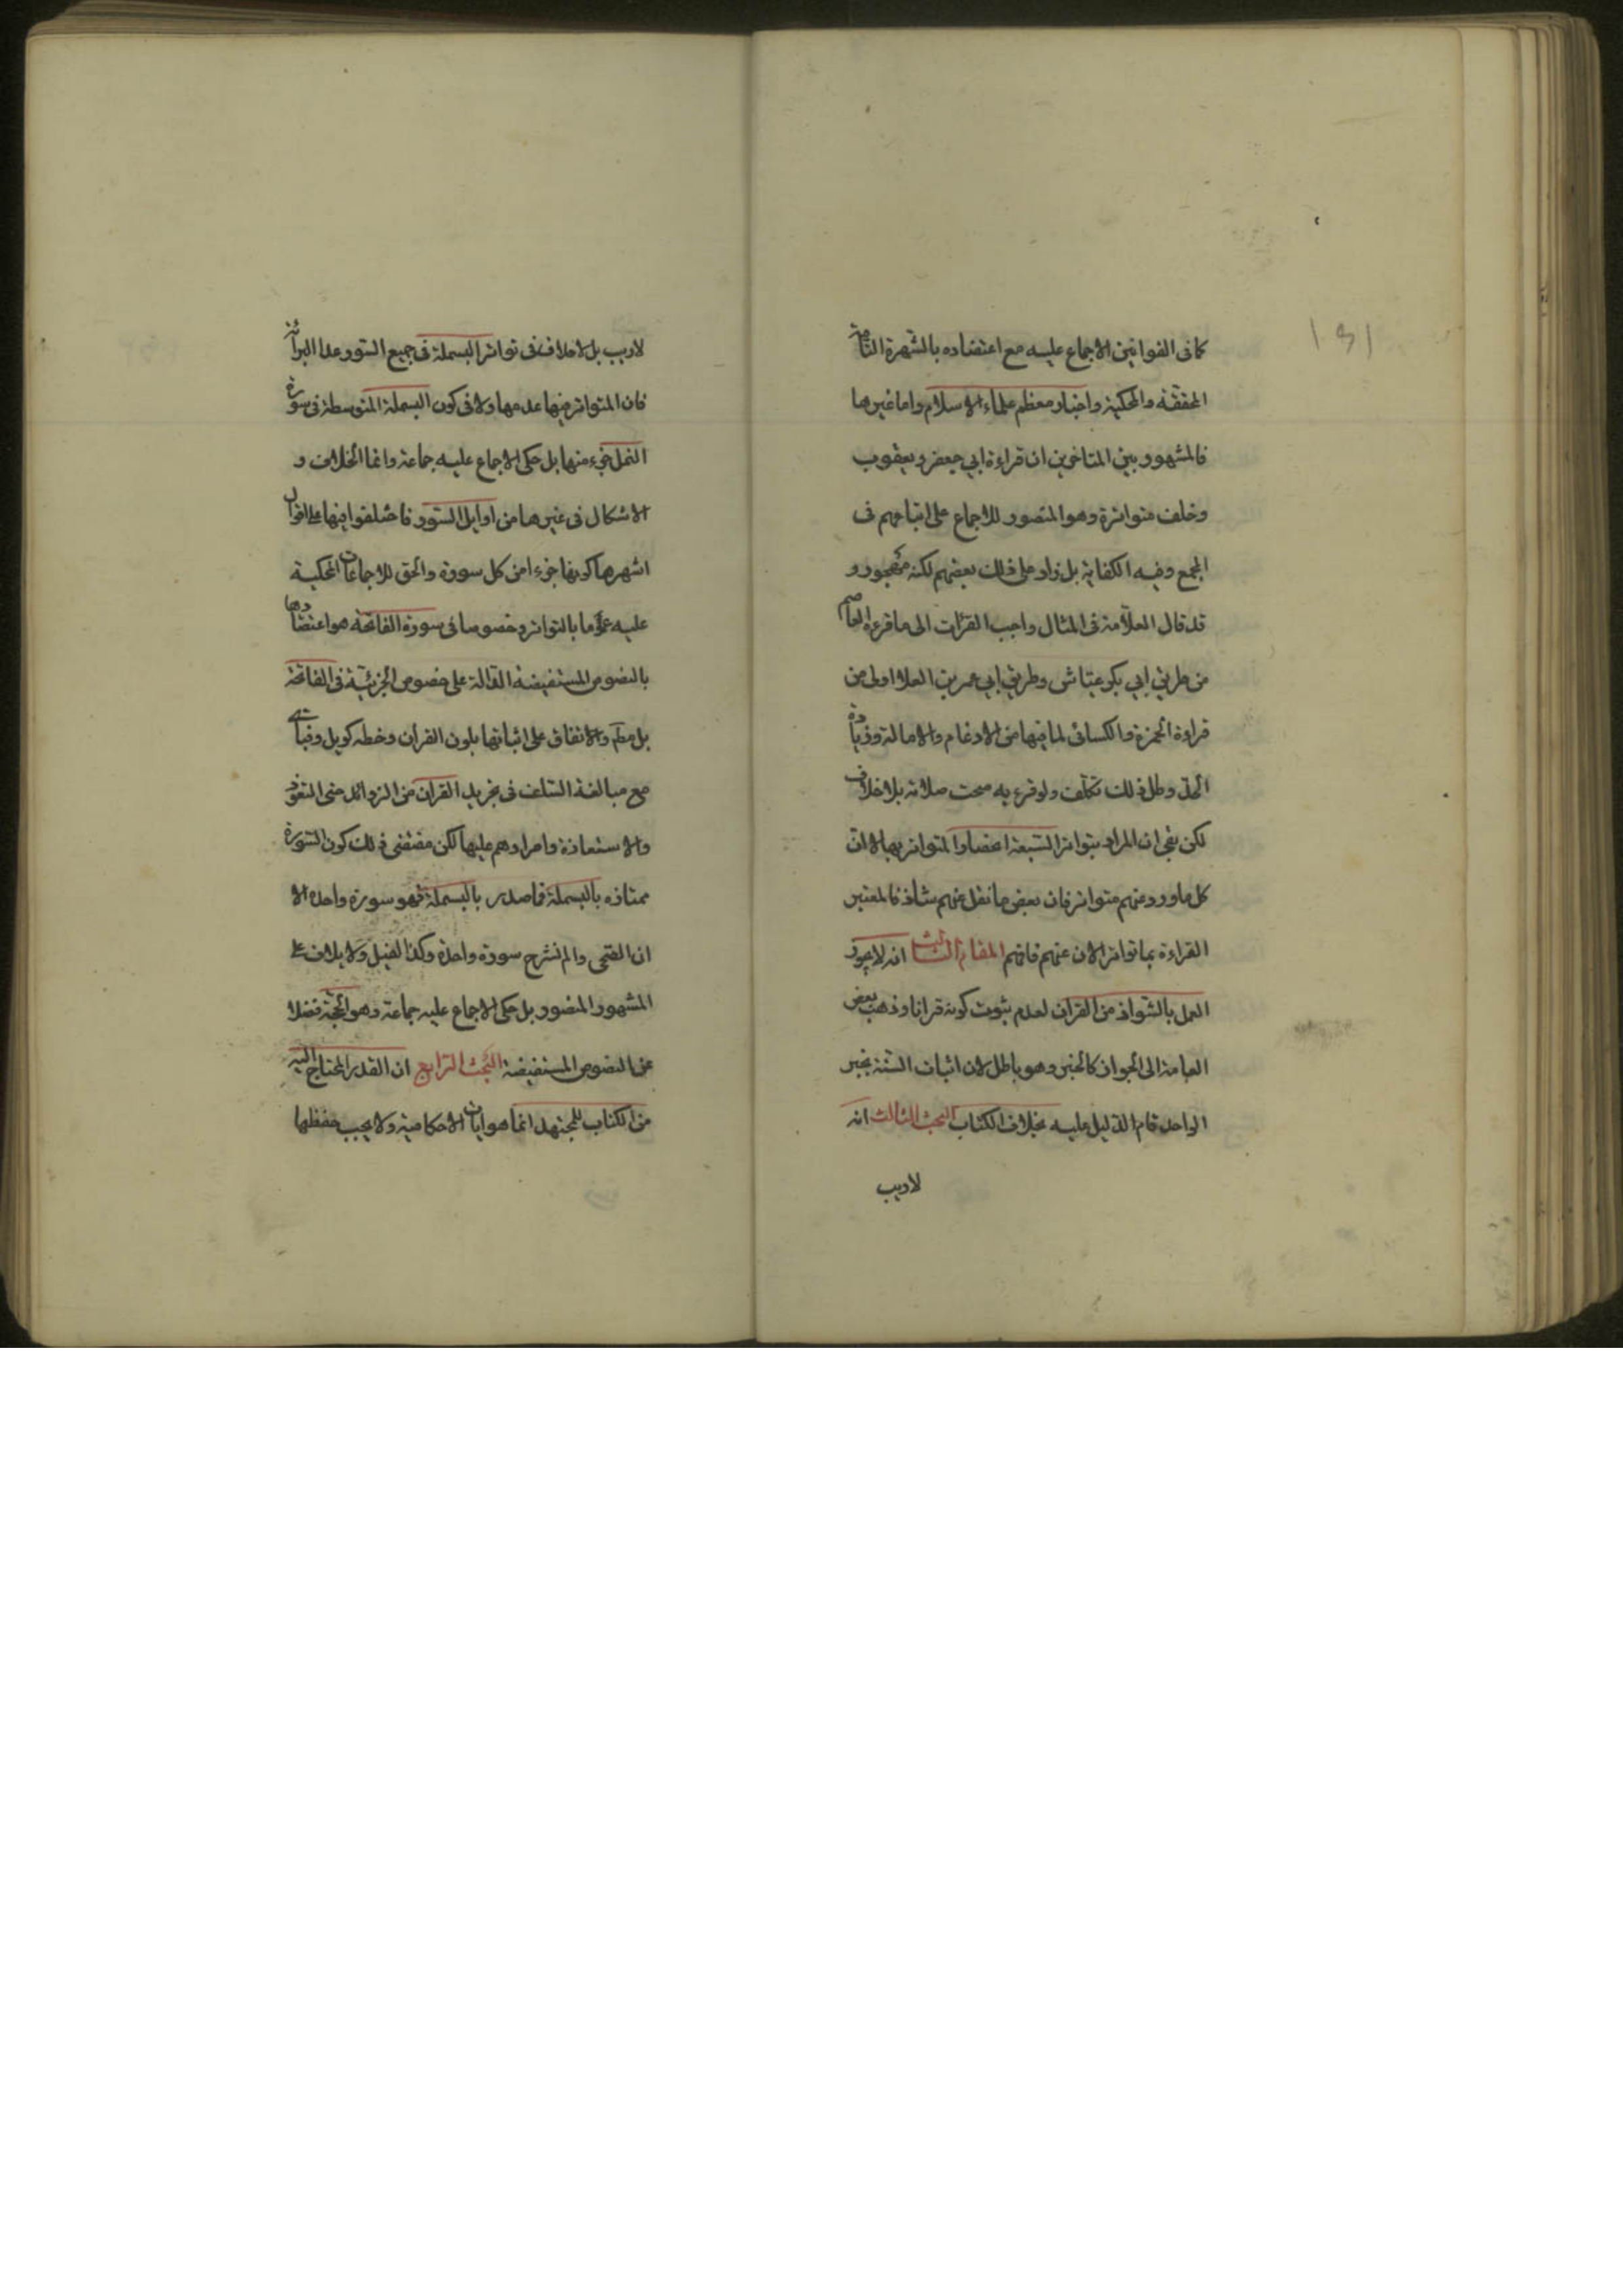 كما فى القوانين الاجماع عليه مع اعتضاده بالشهرة التامة
المحققة والمحكية واخبار معظم علماء الاسلام واما غيرها
فالمشهور بين المتاخرين ان قراءة ابي جعفر ويعقوب
وخلف متواترة وهو المنصور للاجماع على اتباعهم فى
المجمع وفيه الكفاية بل زاد على ذلك بعضهم لكنه مهجور و
قد قال العلامة فى المثال واحب القرآت الى ما قرءه العاصم
من طريق ابي بكر عياش وطريق ابي عمر بن العلا اولى من
قراءة الحمزة والكسائى لما فيها من الادغام والامالة وزيادة
المد وكل ذلك تكلف ولو قرء به صحت صلاته بلا خلاف
لكن بقى ان المراد بتواتر السبعة انحصار المتواتر بها لا ان
كل ما ورد عنهم متواتر فان بعض ما نقل عنهم شاذ فالمعتبر
القراءة بما تواتر الان عنهم فافهم المقام الثالث انه لا يجوز
العمل بالشواذ من القرآن لعدم ثبوت كونه قرانا وذهب بعض
العامة الى الجواز كالخبر وهو باطل لان اثبات السنة بخبر
الواحد قام الدليل عليه بخلاف الكتاب البحث الثالث انه
لاريب
لاريب بل لا خلاف فى تواتر البسملة فى جميع السور عدا البرائة
فان المتواتر فيها عدمها ولا فى كون البسملة المتوسطة فى سورة
النمل جزء منها بل حكى الاجماع عليه جماعة وانما الخلاف و
الاشكال فى غيرها من اوايل السور فاختلفوا فيها على اقوال
اشهرها كونها جزءا من كل سورة والحق للاجماعات المحكية
عليه عموما بالتواتر وخصوصا فى سورة الفاتحة هو اعتضادها
بالنصوص المستفيضة الدالة على خصوص الجزئية فى الفاتحة
بل مطلقا والاتفاق على اثباتها بلون القرآن وخطه
مع مبالغة السلف فى تجريد القرآن من الزوائد حتى التعوذ
والاستعاذة وامرادهم عليها لكن مقتضى ذلك كون السورة
ممتازه بالبسملة فما صدر بالبسملة فهو سورة واحده الا
ان الضحى والم نشرح سورة واحدة وكذا الفيل ولايلاف على
المشهور المنصور بل حكى الاجماع عليه جماعة وهو الحجة فضلا
عن النصوص المستفيضة البحث الرابع ان القدر المحتاج اليه
من الكتاب للمجتهد انما هو ايات الاحكامية ولا يجب حفظها